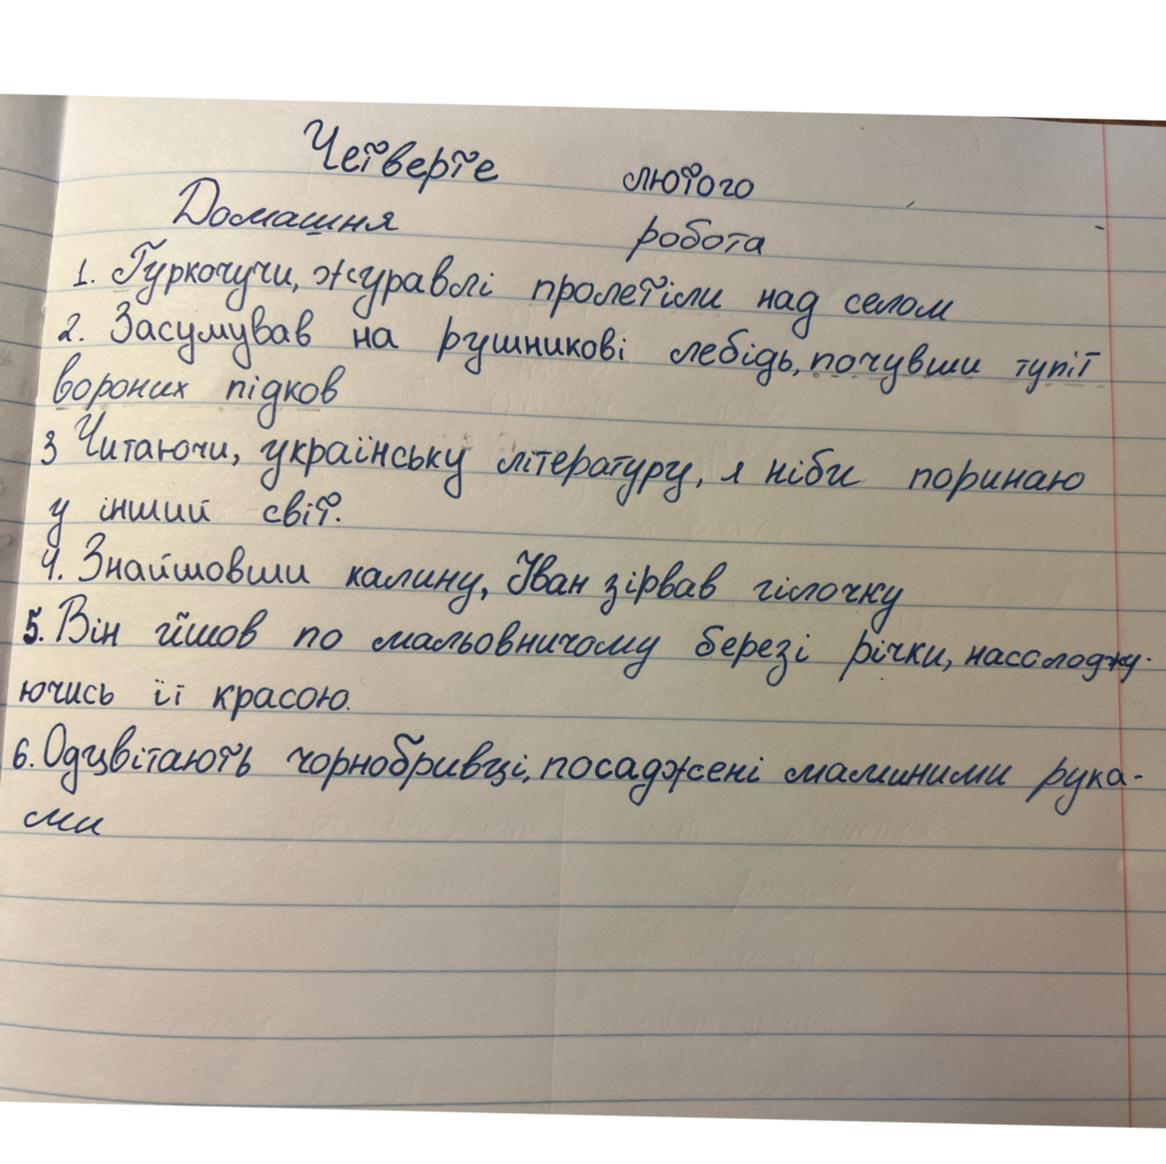 Четверте лютого
Домашня робота
1. Гуркочучи, журавлі пролетіли над селом
2. Засумував на рушникові лебідь, почувши тупіт
вороних підков
3 Читаючи, українську літературу, я ніби поринаю
у інший світ.
4. Знайшовши калину, Іван зірвав гілочку
5. Він йшов по мальовничому березі річки, насолоджу-
ючись її красою.
6. Одцвітають чорнобривці, посаджені маминими рука-
ми